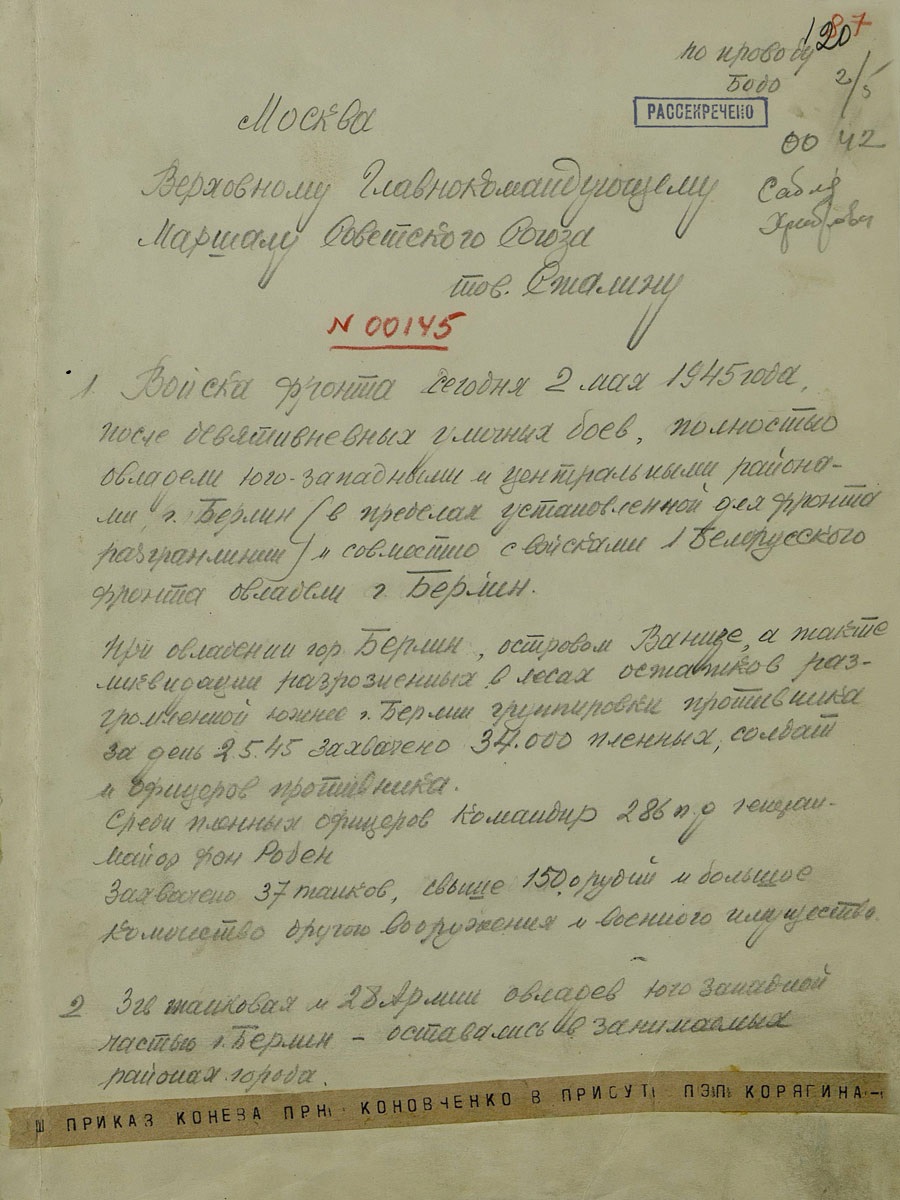 87
120
по проводу
Бодо
2/5
РАССЕКРЕЧЕНО
00 42
Москва
Верховному Главнокомандующему
Маршалу Советского Союза
тов. Сталину
N 00145
1. Войска фронта сегодня 2 мая 1945 года,
после девятидневных уличных боев, полностью
овладели юго-западными и центральными района-
ми г. Берлин (в пределах установленной для фронта
разгранлинии) и совместно с войсками 1 Белорусского
фронта овладели г. Берлин.
При овладении гор. Берлин, островом Ванзее, а также
ликвидации разрозненных в лесах остатков раз-
громленной южнее г. Берлин группировки противника
за день 2.5.45 захвачено 34.000 пленных, солдат
и офицеров противника.
Среди пленных офицеров командир 286 п.д генерал-
майор фон Робен
Захвачено 37 танков, свыше 150 орудий и большое
количество другого вооружения и военного имущества.
2 3 гв танковая и 28 Армии овладев юго западной
частью г. Берлин - оставались в занимаемых
районах города.
Ш ПРИКАЗ КОНЕВА ПРН КОНОВЧЕНКО В ПРИСУТ ПЭП КОРЯГИНА-